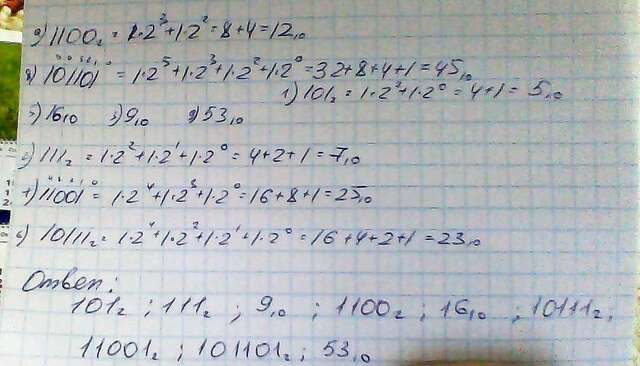 1100₂ = 1·2³+1·2²=8+4=12₁₀
101101 = 1·2⁵+1·2³+1·2²+1·2⁰=32+8+4+1=45₁₀
1) 101₂ = 1·2²+1·2⁰=4+1= 5₁₀
16₁₀ 9₁₀ 53₁₀
111₂ = 1·2²+1·2¹+1·2⁰= 4+2+1=7₁₀
11001 = 1·2⁴+1·2³+1·2⁰=16+8+1=25₁₀
10111₂= 1·2⁴+1·2²+1·2¹+1·2⁰=16+4+2+1=23₁₀
Ответ:
101₂ ; 111₂ ; 9₁₀ ; 1100₂ ; 16₁₀ ; 10111₂;
11001₂ ; 101101₂ ; 53₁₀